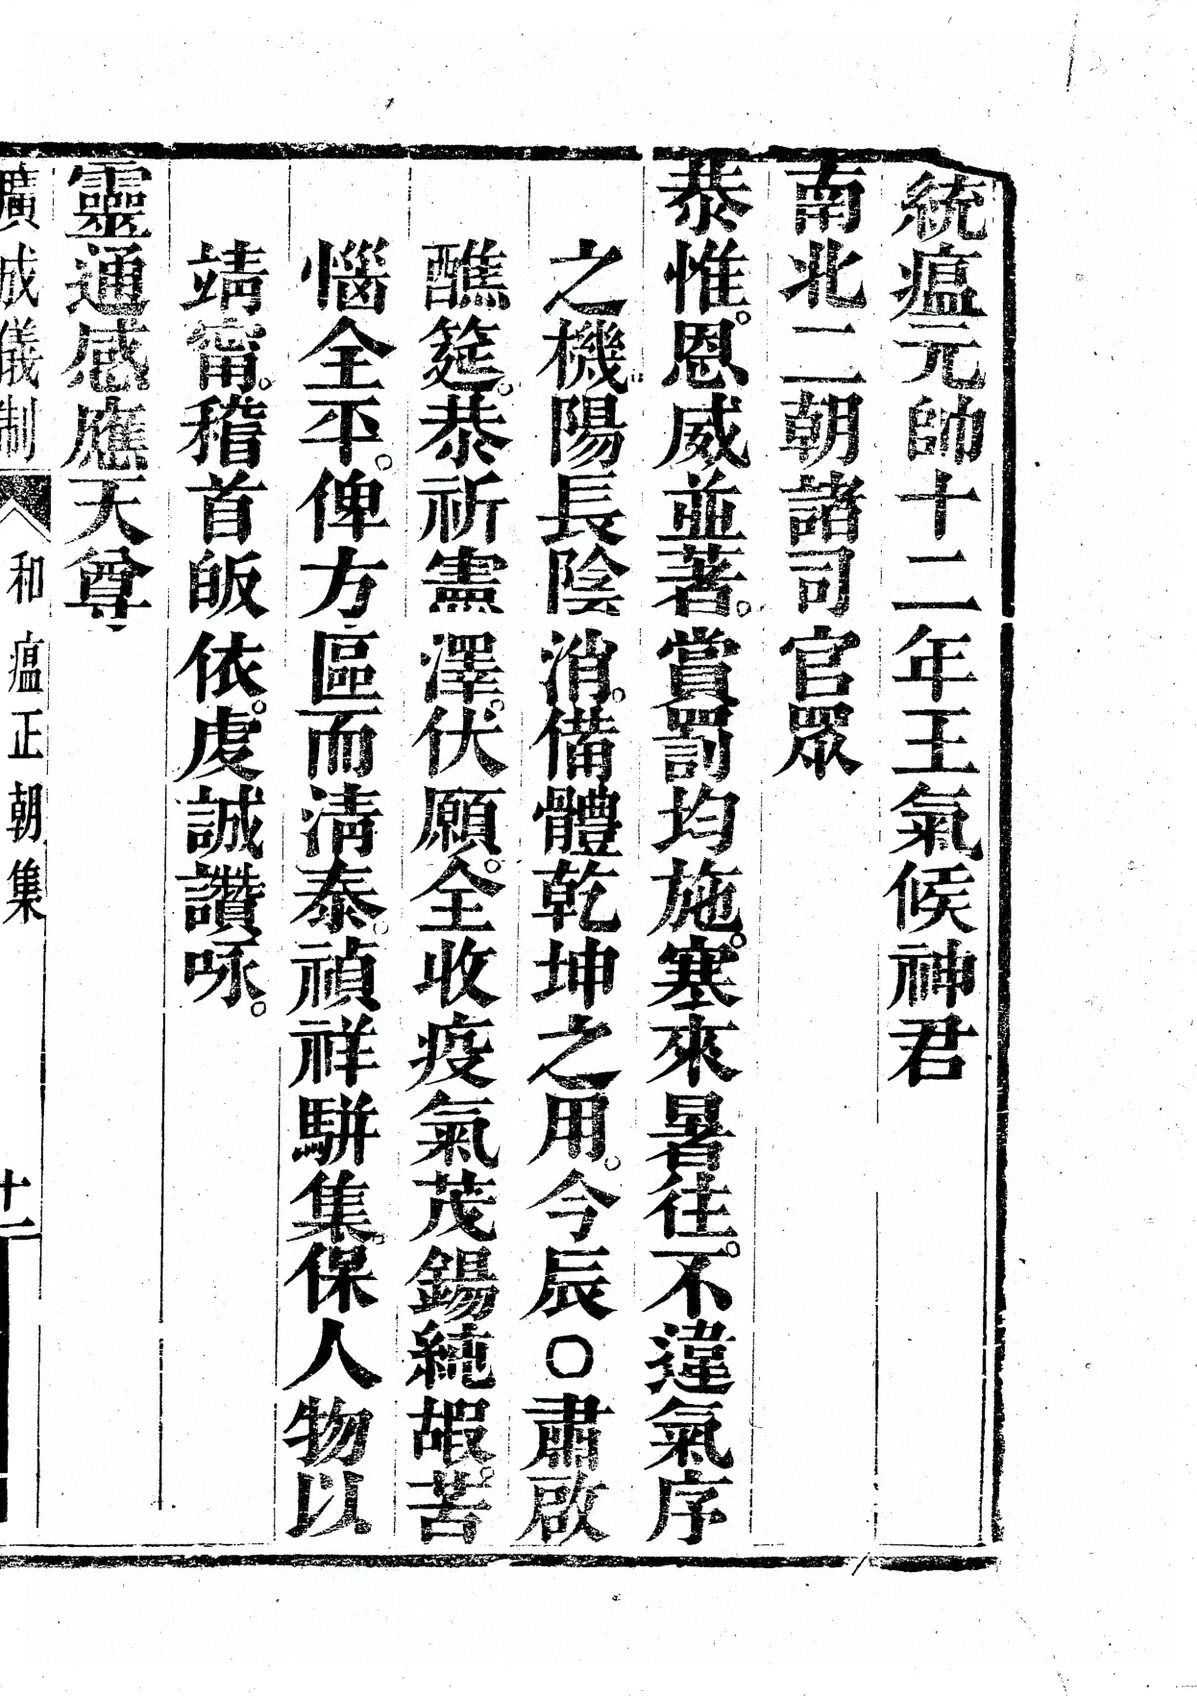 統瘟元帥十二年王氣候神君
南北二朝諸司官眾
恭惟。恩威並著。賞罰均施。寒來暑往。不違氣序
之機。陽長陰消。備體乾坤之用。今辰○肅啟
醮筵。恭祈靈澤。伏願。全收疫氣茂錫純嘏。苦
惱全平。俾方區而清泰。禎祥駢集。保人物以
靖甯。稽首皈依。虔誠讚咏。
靈通感應天尊
廣成儀制 和瘟正朝集 十一